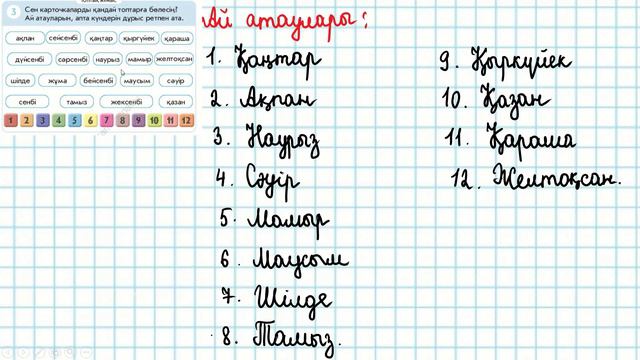 3 Сен карточкаларды қандай топтарға бөлесің?
Ай атауларын, апта күндерін дұрыс ретпен ата.
ақпан сейсенбі қаңтар қыркүйек қараша
дүйсенбі сәрсенбі наурыз мамыр желтоқсан
шілде жұма бейсенбі маусым сәуір
сенбі тамыз жексенбі қазан
1 2 3 4 5 6 7 8 9 10 11 12
Ай атаулары:
1. Қаңтар
2. Ақпан
3. Наурыз
4. Сәуір
5. Мамыр
6. Маусым
7. Шілде
8. Тамыз.
9. Қыркүйек
10. Қазан
11. Қараша
12. Желтоқсан.